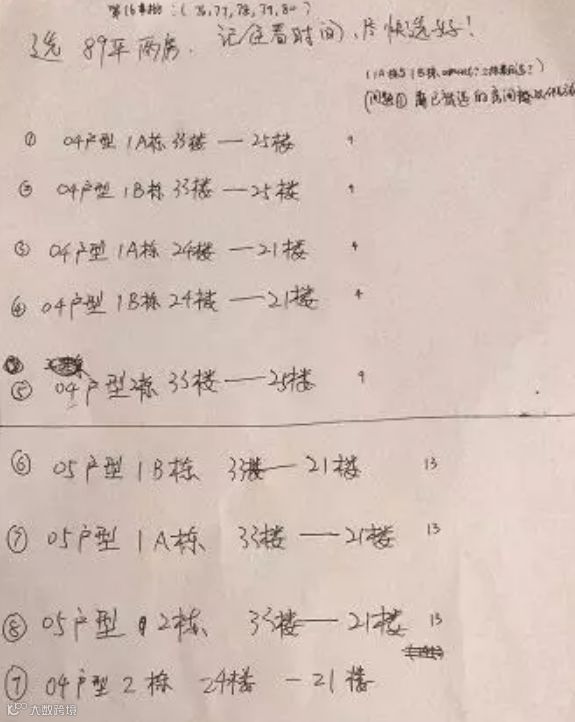 第16事物:(76,77,78,79,80)
选 89平两房. 记住看时间,尽快选好!
(1A栋与1B栋
(问题① 离已被选的房间
① 04户型 1A栋 33楼 — 25楼 9
② 04户型 1B栋 33楼 — 25楼 9
③ 04户型 1A栋 24楼 — 21楼 4
④ 04户型 1B栋 24楼 — 21楼 4
⑤ 04户型 2栋 33楼 — 25楼 9
⑥ 05户型 1B栋 33楼 — 21楼 13
⑦ 05户型 1A栋 33楼 — 21楼 13
⑧ 05户型 2栋 33楼 — 21楼 13
⑦ 04户型 2栋 24楼 — 21楼
大数跨境